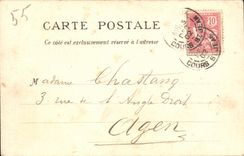 55
CARTE POSTALE
Ce côté est exclusivement réservé à l'adresse
10
Madame Chastang
3 rue de l'Angle Droit
Agen